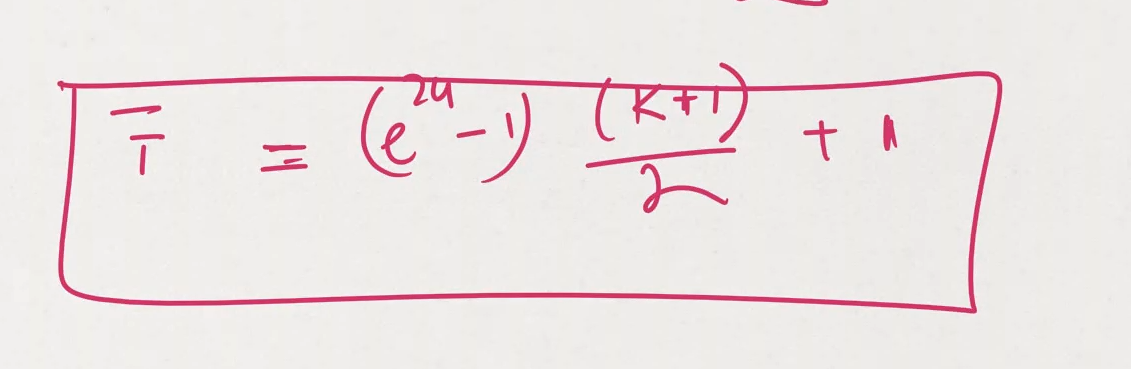 T̅ = (e^{2u} - 1) (K+1)/2 + 1